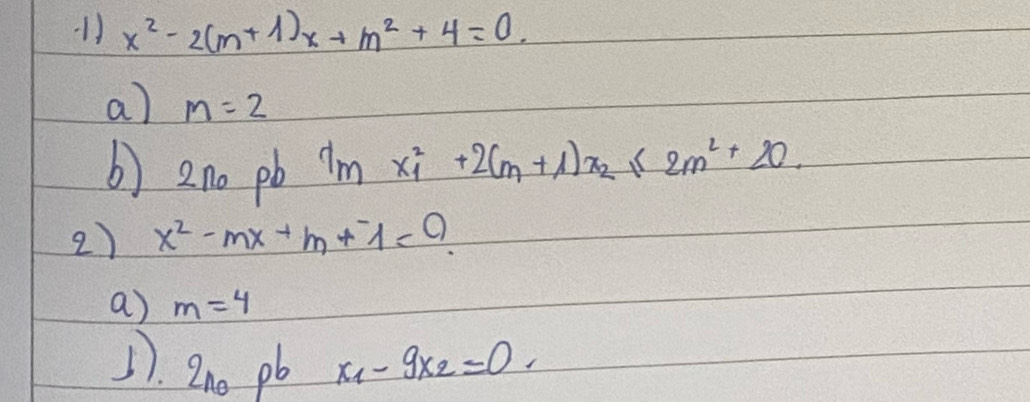 1) x² - 2(m+1)x + m² + 4 = 0.
a) m = 2
b) 2 no pb tm x₁² + 2(m+1)x₂ ≤ 2m² + 20.
2) x² - mx + m - 1 = 0.
a) m = 4
b). 2 no pb x₁ - 9x₂ = 0.